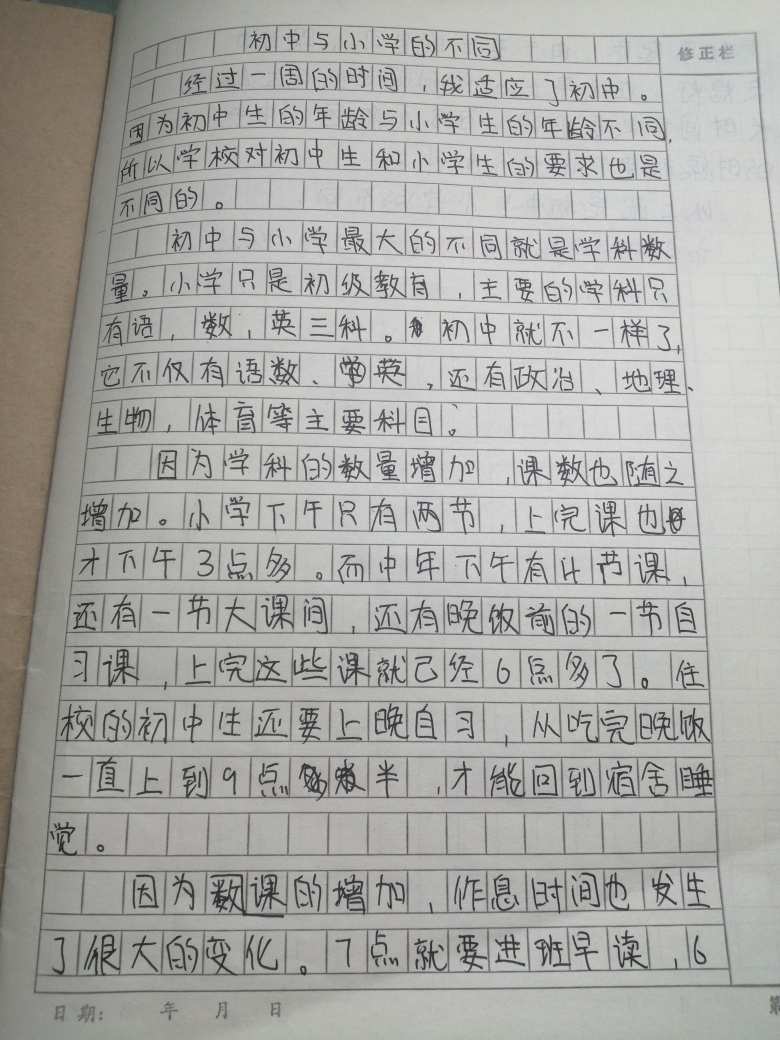 初中与小学的不同
修正栏
经过一周的时间，我适应了初中。
因为初中生的年龄与小学生的年龄不同，
所以学校对初中生和小学生的要求也是
不同的。
初中与小学最大的不同就是学科数
量。小学只是初级教育，主要的学科只
有语，数，英三科。初中就不一样了，
它不仅有语数、英，还有政治、地理、
生物，体育等主要科目。
因为学科的数量增加，课数也随之
增加。小学下午只有两节，上完课也
才下午3点多。而中年下午有4节课，
还有一节大课间，还有晚饭前的一节自
习课，上完这些课就已经6点多了。住
校的初中生还要上晚自习，从吃完晚饭
一直上到9点半，才能回到宿舍睡
觉。
因为数课的增加，作息时间也发生
了很大的变化。7点就要进班早读，6
日期： 年 月 日